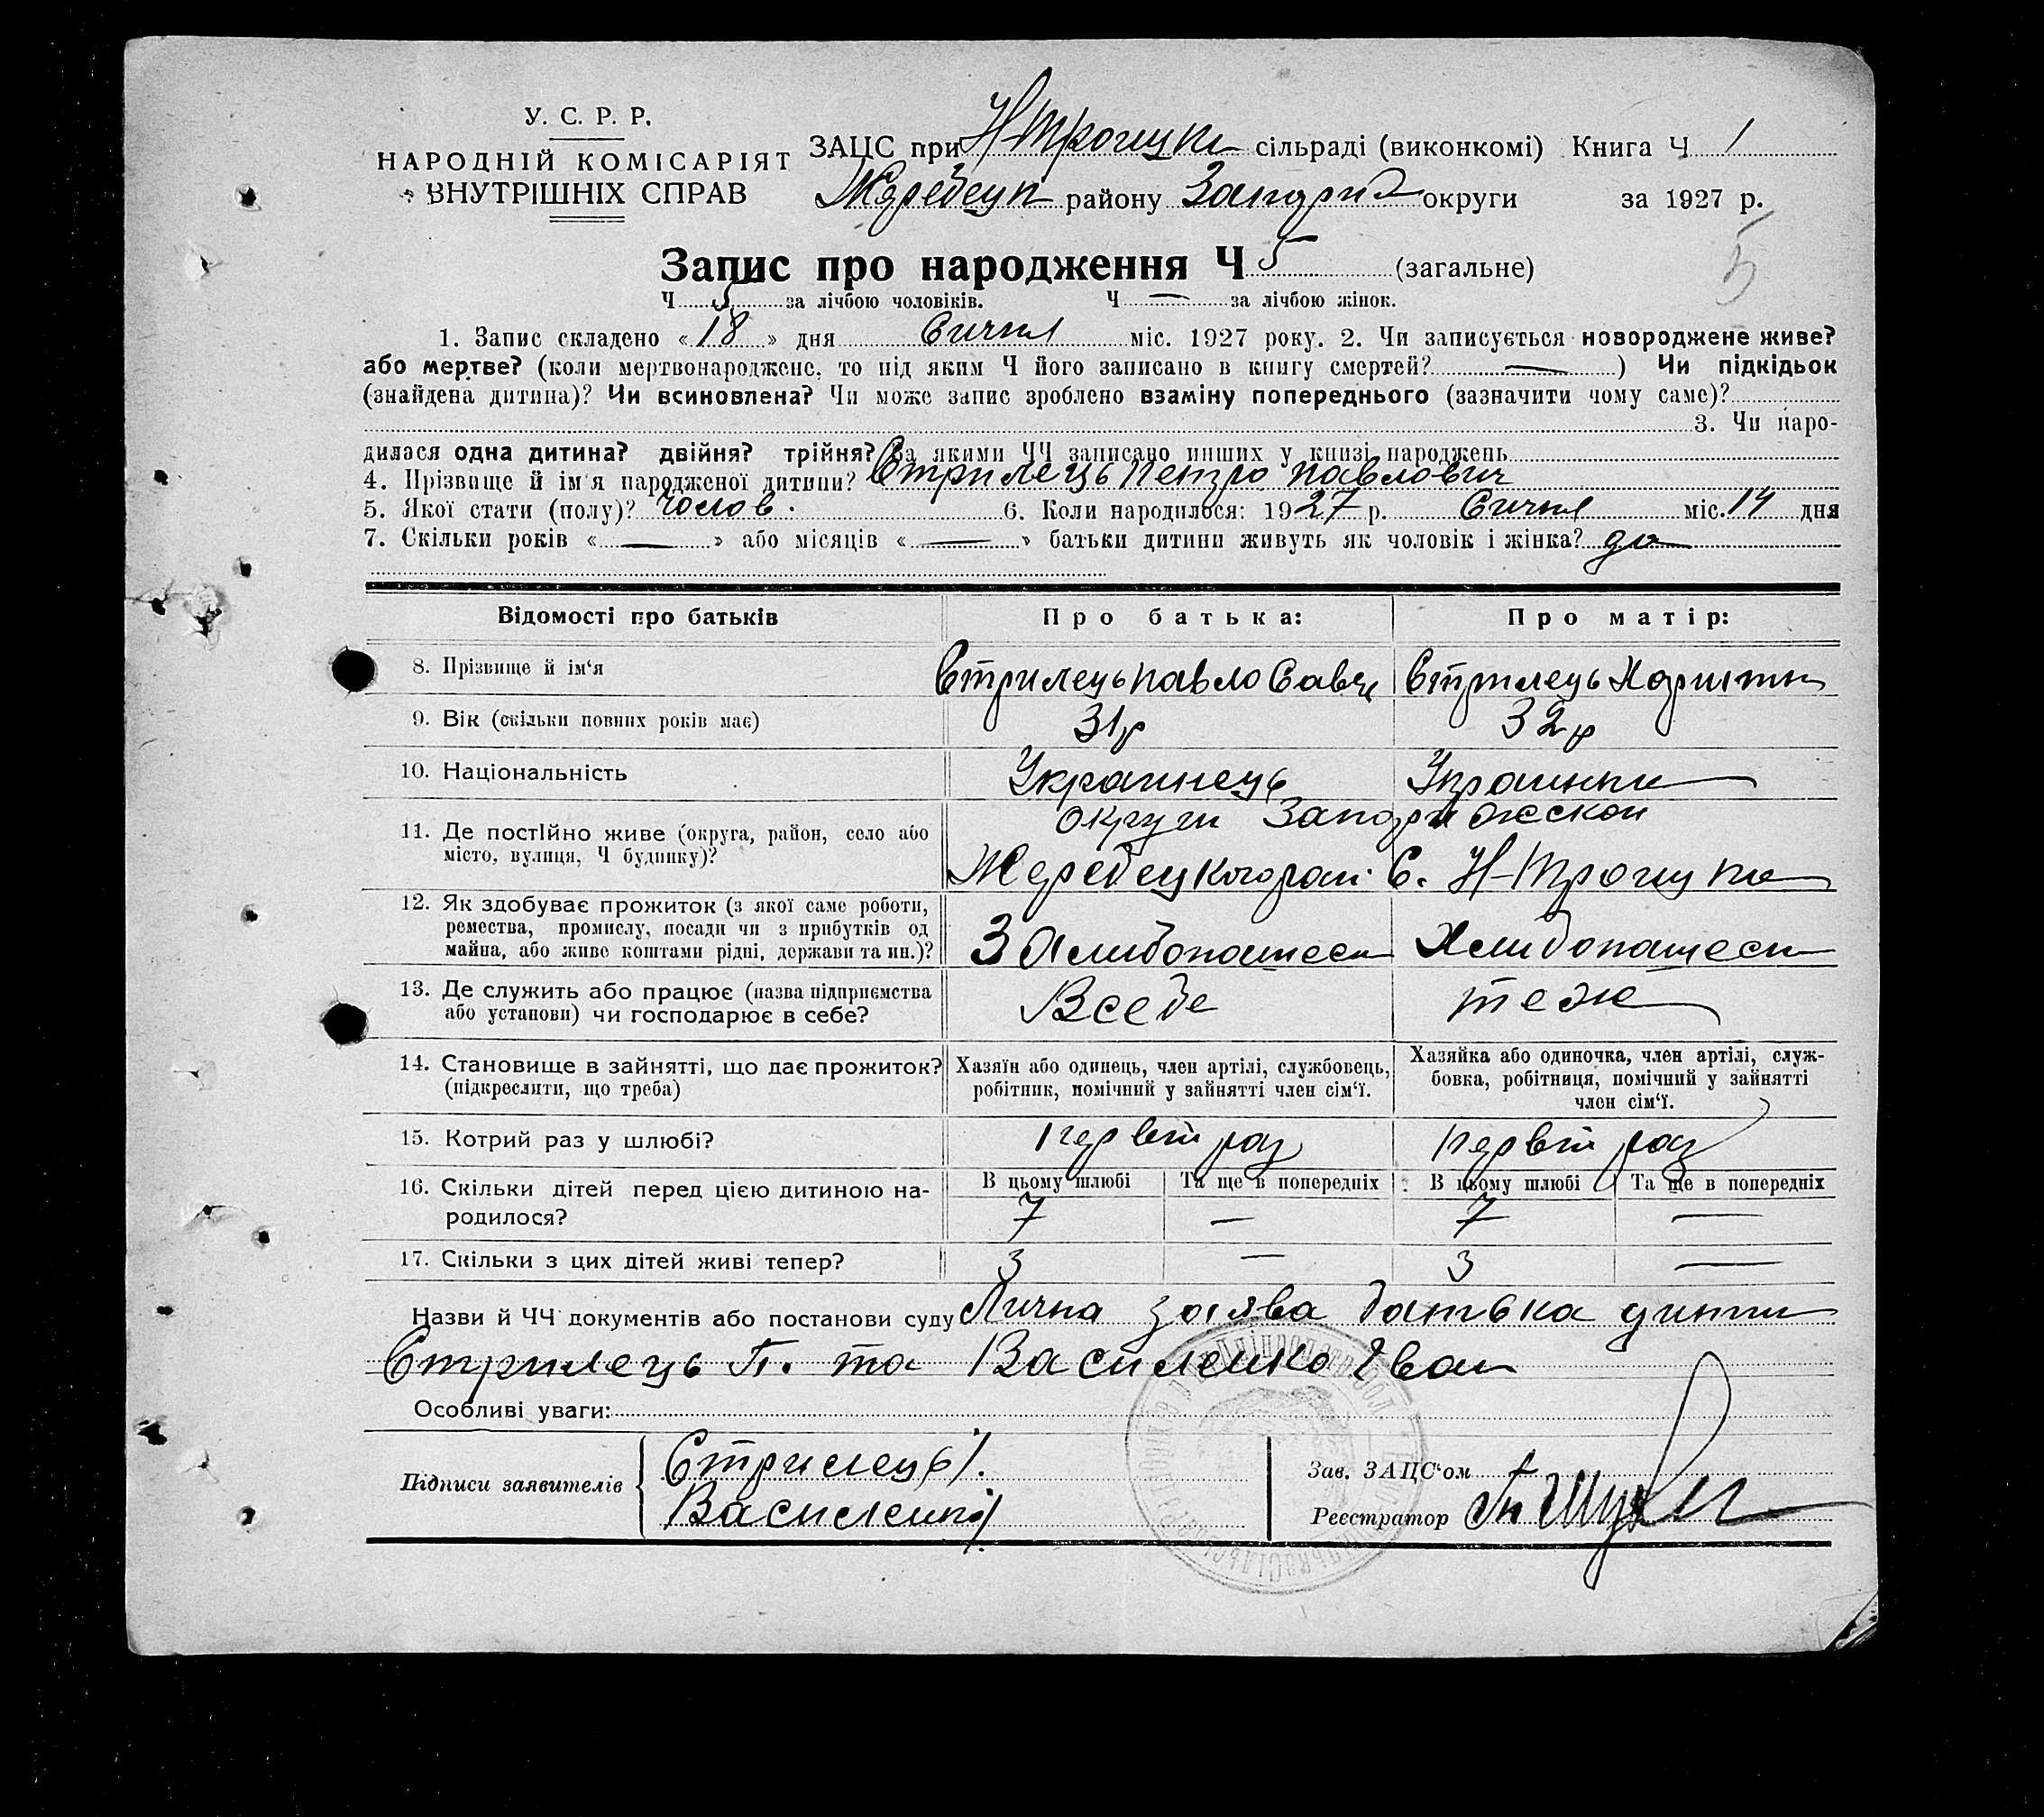 У. С. Р. Р.
НАРОДНІЙ КОМІСАРІЯТ
ВНУТРІШНІХ СПРАВ
ЗАЦС при Н-Троицки сільраді (виконкомі) Книга Ч 1
Жеребецк району Запориз округи за 1927 р.
5
Запис про народження Ч 5 (загальне)
Ч 5 за лічбою чоловіків. Ч — за лічбою жінок.
1. Запис складено «18» дня Сичня міс. 1927 року. 2. Чи записується новороджене живе?
або мертве? (коли мертвонароджене, то під яким Ч його записано в книгу смертей? — ) Чи підкідьок
(знайдена дитина)? Чи всиновлена? Чи може запис зроблено взаміну попереднього (зазначити чому саме)?
3. Чи наро-
дилася одна дитина? двійня? трійня? За якими ЧЧ записано инших у книзі народжень
4. Прізвище й ім'я народженої дитини? Стрилець Петро Павлович
5. Якої стати (полу)? Чолов. 6. Коли народилося: 1927 р. Сичня міс. 14 дня
7. Скільки років « — » або місяців « — » батьки дитини живуть як чоловік і жінка? да
Відомості про батьків Про батька: Про матір:
8. Прізвище й ім'я Стрилець Павло Савч Стрилець Христи
9. Вік (скільки повних років має) 31р 32р
10. Національність Украинець Украинка
11. Де постійно живе (округа, район, село або
місто, вулиця, Ч будинку)?
Округи Запорижскои
Жеребецкого рай. С. Н-Троицке
12. Як здобуває прожиток (з якої саме роботи,
ремества, промислу, посади чи з прибутків од
майна, або живе коштами рідні, держави та ин.)?
З Хлибопашеси Хлибопашеси
13. Де служить або працює (назва підприємства
або установи) чи господарює в себе?
Всебе теж
14. Становище в зайнятті, що дає прожиток?
(підкреслити, що треба)
Хазяїн або одинець, член артілі, службовець,
робітник, помічний у зайнятті член сім'ї.
Хазяйка або одиночка, член артілі, служ-
бовка, робітниця, помічний у зайнятті
член сім'ї.
15. Котрий раз у шлюбі? первый раз первый раз
16. Скільки дітей перед цією дитиною на-
родилося?
В цьому шлюбі Та ще в попередніх В цьому шлюбі Та ще в попередніх
7 — 7 —
17. Скільки з цих дітей живі тепер? 3 — 3 —
Назви й ЧЧ документів або постанови суду Лична заява батька дити
Стрилець П. та Василенко Иван
Особливі уваги:
Підписи заявителів
Стрилець
Василенко
Зав. ЗАЦС'ом
Реєстратор